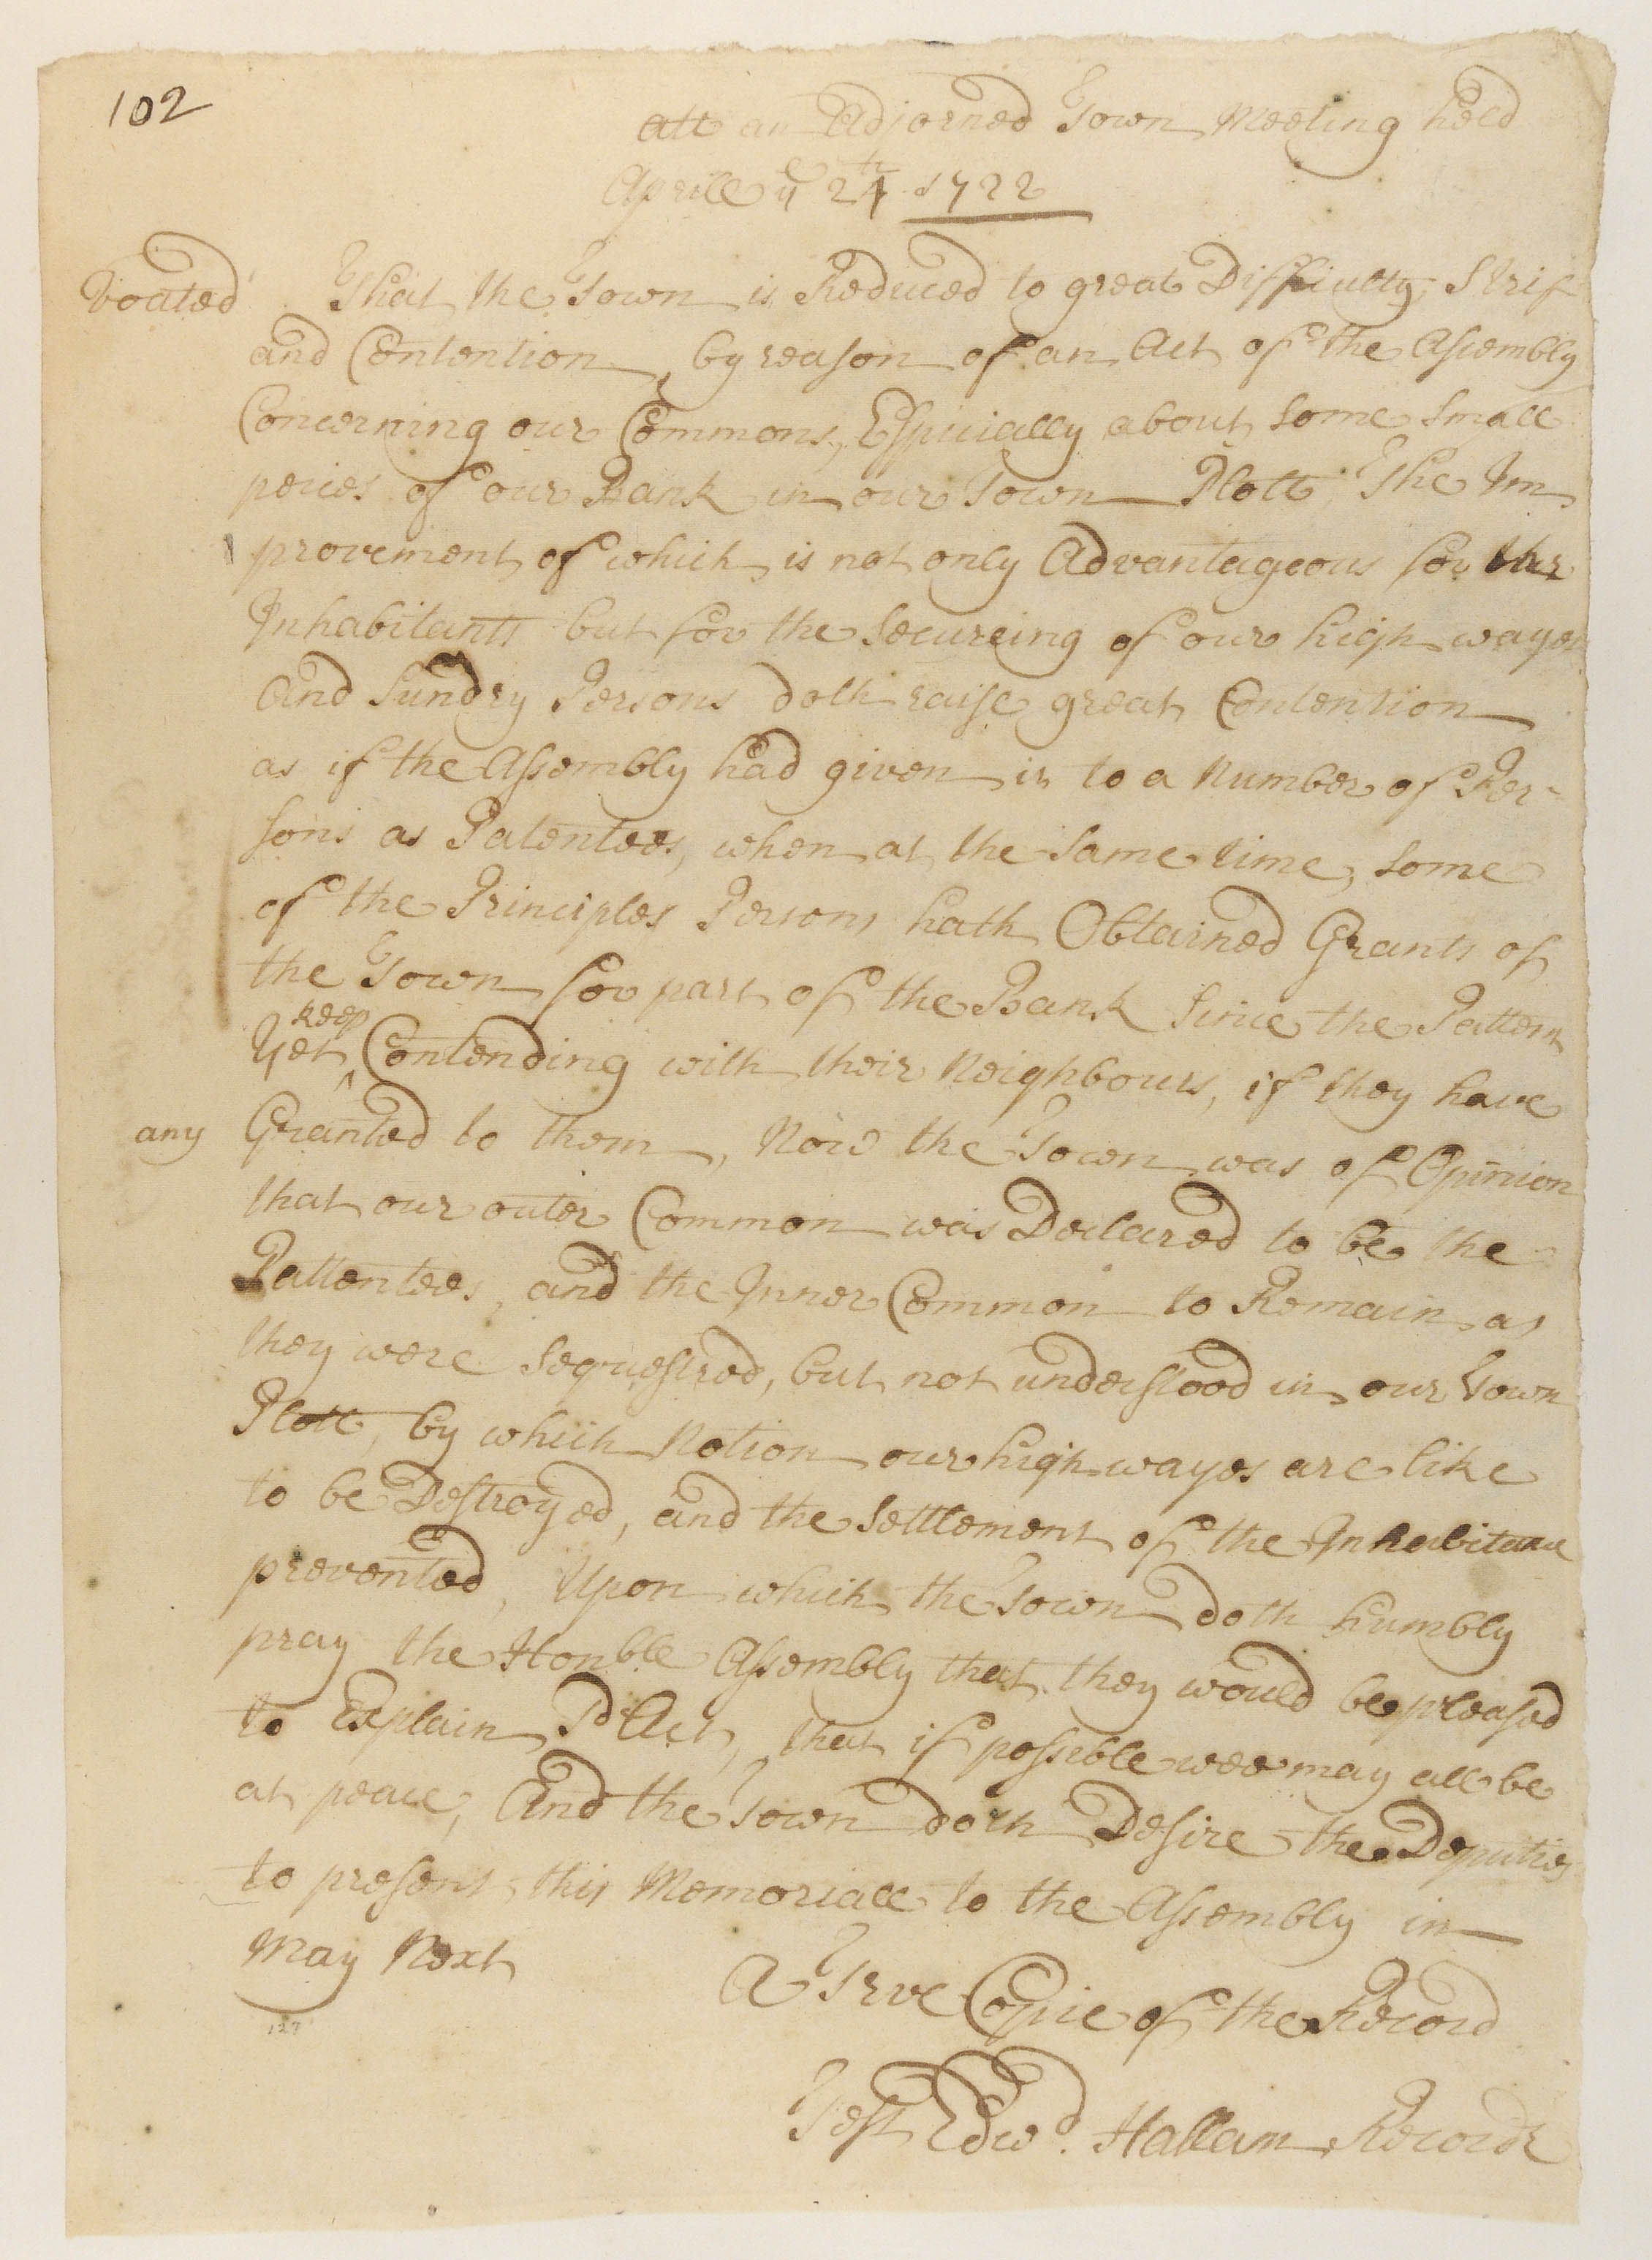 102
att an Adjorned Town Meeting held
Aprill ye 24th 1722
Voated That the Town is Reduced to great Difficulty, Strif
and Contention, by reason of an Act of the Assembly
Concerning our Commons, Espicially about some small
peices of our Bank in our Town Plott, The Im
provement of which is not only Advantageous for the
Inhabitants but for the Secureing of our high wayes
And Sundry Persons doth raise great Contention
as if the Assembly had given it to a Number of Per-
sons as Patentees, when at the same time, some
of the Principles Persons hath Obtained Grants of
the Town for part of the Bank Since the Pattent
Yet ^keep Contending with their Neighbours, if they have
any Granted to them, Now the Town was of Opinion
that our outer Common was Declared to be the
Pattentees, and the Inner Common to Remain as
they were Sequestred, but not understood in our Town
Plott, by which Notion our high wayes are like
to be Destroyed, and the settlement of the Inhabitants
prevented, Upon which the Town doth humbly
pray the Honble Assembly that they would be pleased
to Explain Sd Act, that if possible wee may all be
at peace, And the Town doth Desire the Deputies
to present this Memoriall to the Assembly in
May Next
A True Copie of the Record
127
Test Edwd. Hallam Recordr